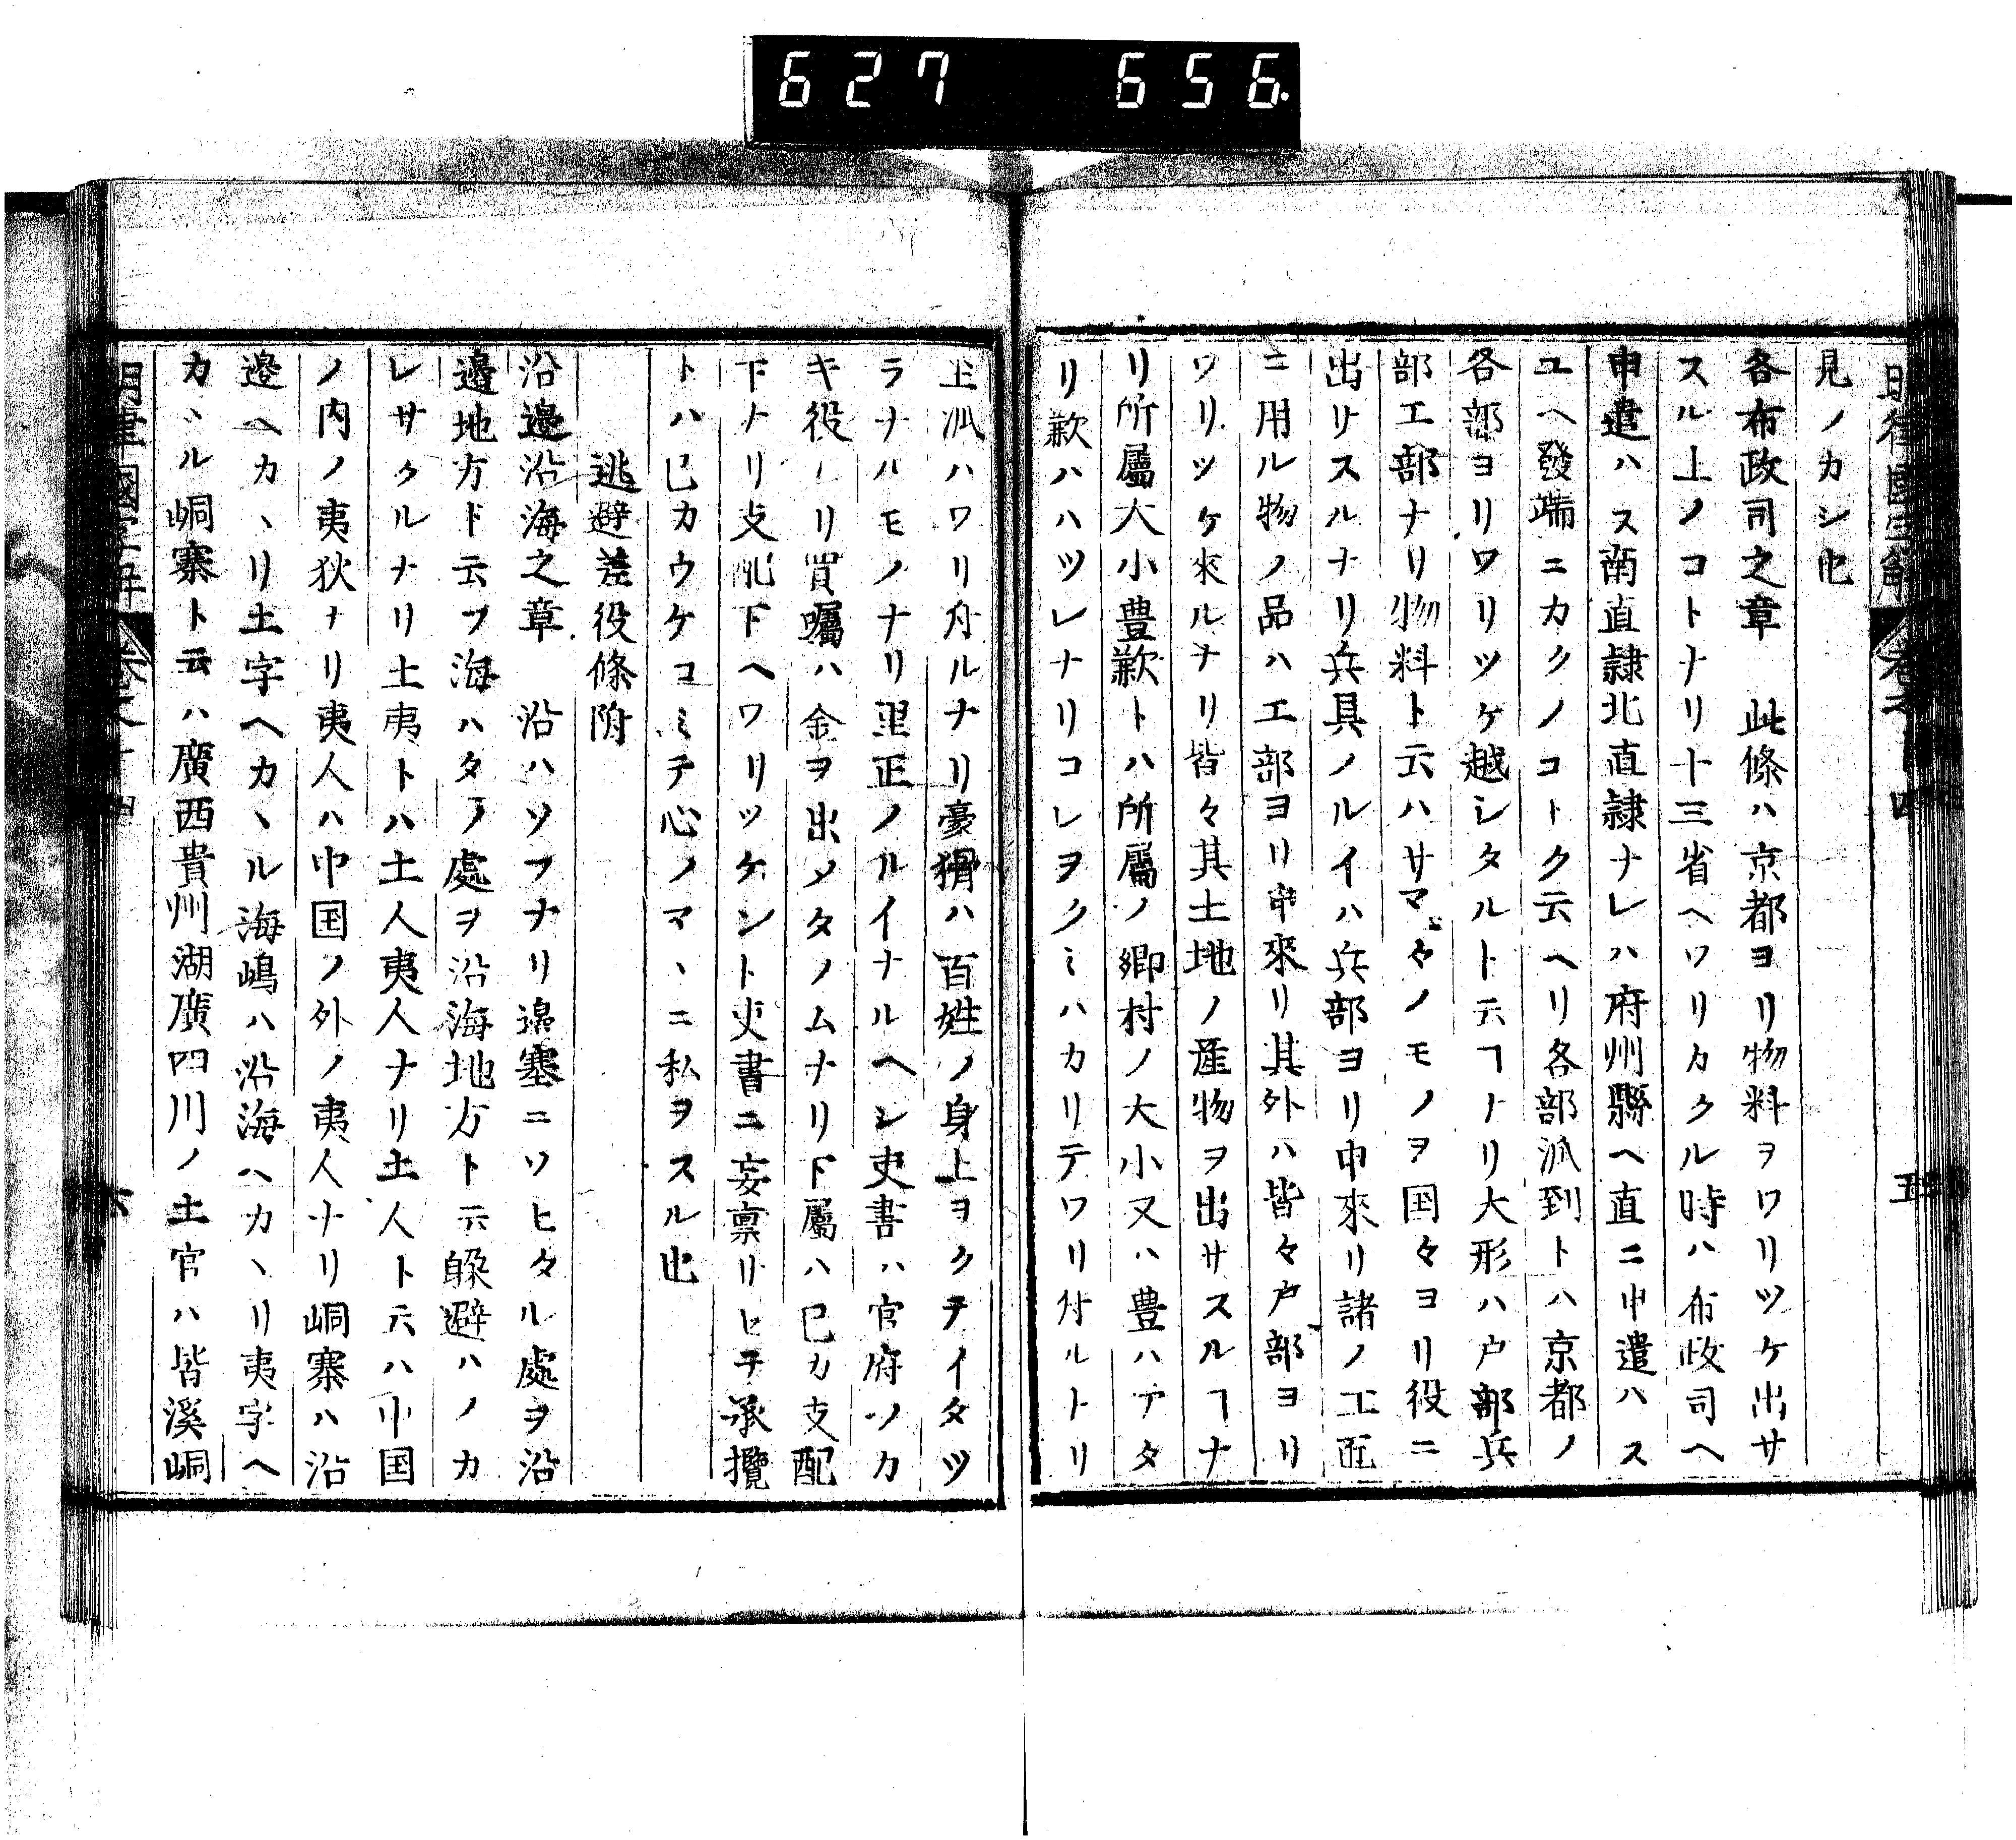 627 656
見ノカシ也
各布政司之章　此條ハ京都ヨリ物料ヲワリツケ出サ
スル上ノコトナリ十三省ヘワリカクル時ハ布政司ヘ
申遣ハス南直隷北直隷ナレハ府州縣ヘ直ニ申遣ハス
ユヘ發端ニカクノコトク云ヘリ各部派到トハ京都ノ
各部ヨリワリツケ越シタルト云ヿナリ大形ハ戸部兵
部工部ナリ物料ト云ハサマ〴〵ノモノヲ国々ヨリ役ニ
出サスルナリ兵具ノルイハ兵部ヨリ申來リ諸ノ工匠
ニ用ル物ノ品ハ工部ヨリ申來リ其外ハ皆々戸部ヨリ
ワリツケ來ルナリ皆々其土地ノ産物ヲ出サスルヿナ
リ所屬大小豊歉トハ所屬ノ郷村ノ大小又ハ豊ハアタ
リ歉ハハツレナリコレヲクミハカリテワリ付ルトリ
上派ハワリ舟ルナリ豪猾ハ百姓ノ身上ヲクテイタツ
ラナルモノナリ里正ノルイナルヘシ吏書ハ官府ノカ
キ役ノリ買囑ハ金ヲ出メタノムナリ下屬ハ已カ支配
下ナリ支配下ヘワリツケント吏書ニ妄禀リヒテ承攬
トハ已カウケコミテ心ノマヽニ私ヲスル也
逃避差役條附
沿邊沿海之章　沿ハソフナリ邊塞ニソヒタル處ヲ沿
邊地方ト云フ海ハタノ處ヲ沿海地方ト云躲避ハノカ
レサクルナリ土夷トハ土人夷人ナリ土人ト云ハ中国
ノ内ノ夷狄ナリ夷人ハ中国ノ外ノ夷人ナリ峒寨ハ沿
邊ヘカヽリ土字ヘカヽル海嶋ハ沿海ヘカヽリ夷字ヘ
カヽル峒寨ト云ハ廣西貴州湖廣四川ノ土官ハ皆溪峒